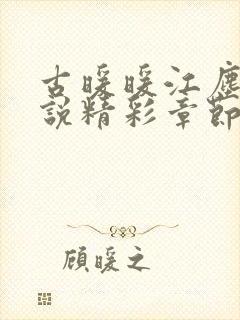 古暖暖江塵
說精彩章節
顧暖之